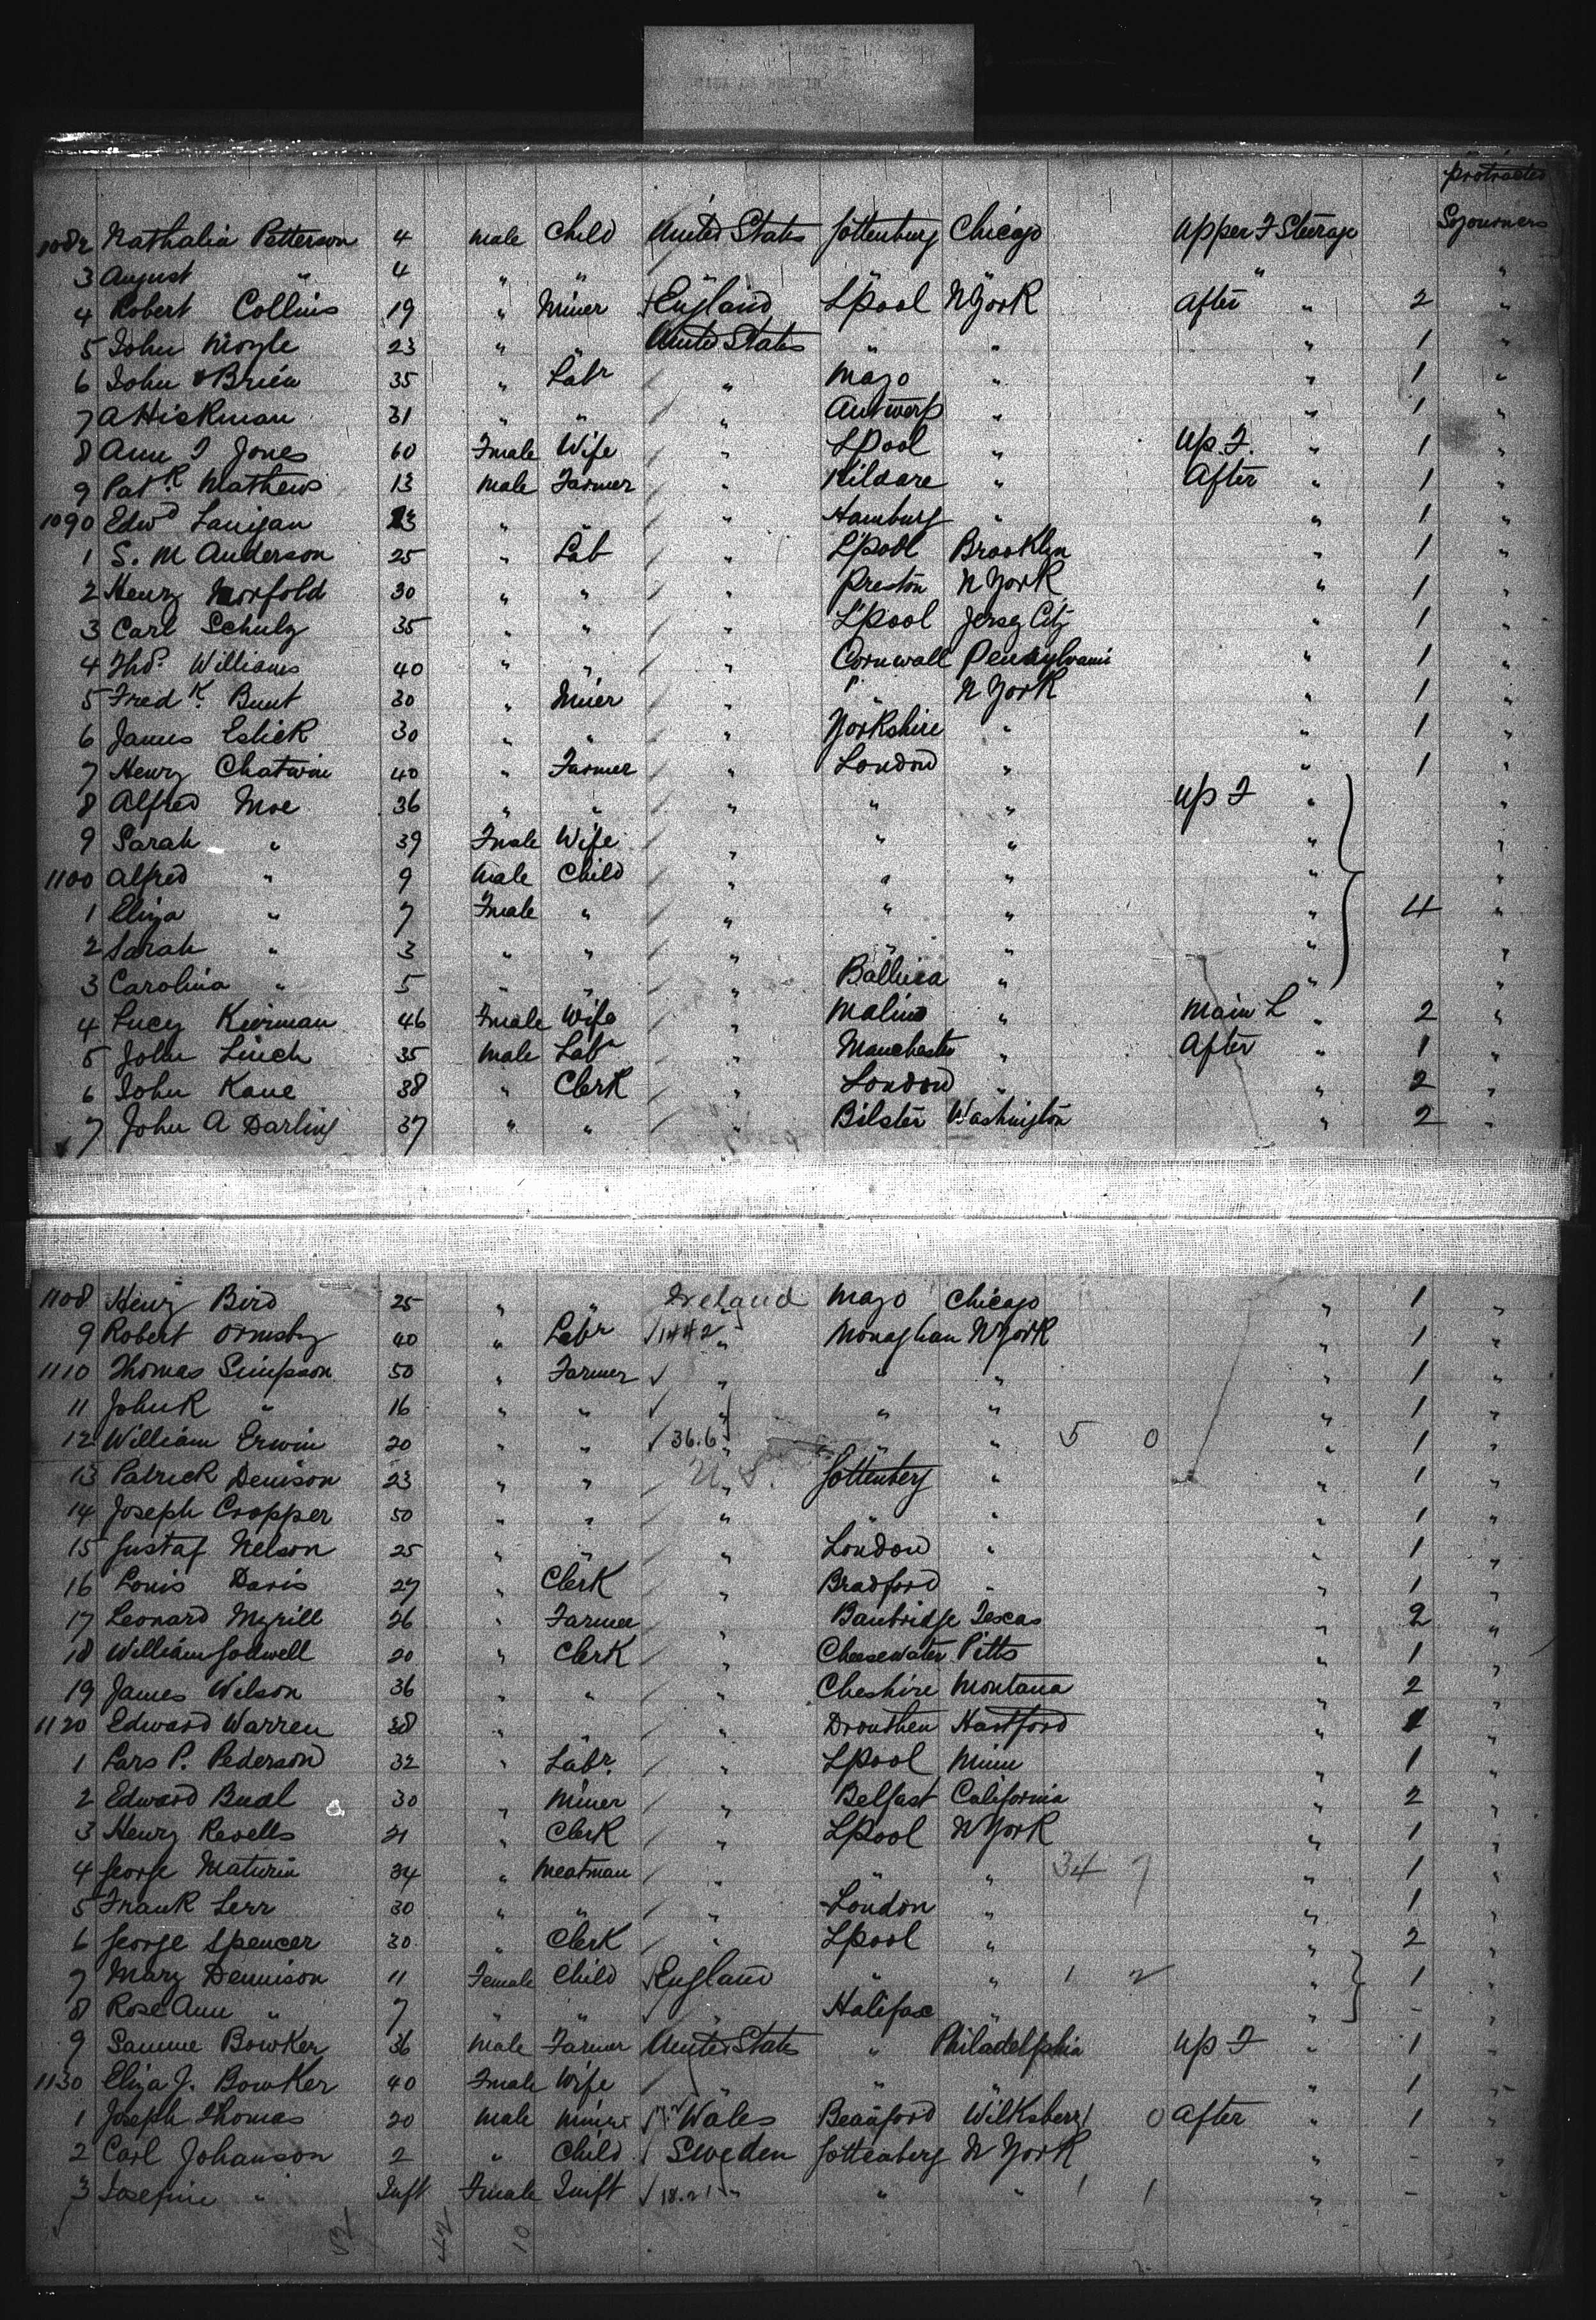 protracted
1082 Nathalia Petterson 4 male Child United States Gottenburg Chicago Upper F Steerage Sojourners
3 August " 4 " " " " "
4 Robert Collins 19 " Miner England L'pool N York After " 2 "
5 John Moyle 23 " " United States " " " 1 "
6 John O'Brien 35 " Labr " Mayo " " 1 "
7 A Hickman 31 " " " Antwerp " " 1 "
8 Ann J Jones 60 Fmale Wife " L Pool " Up. F. " 1 "
9 Patk Mathews 13 Male Farmer " Kildare " After " 1 "
1090 Edwd Lanigan " " " Hamburg " " 1 "
1 S. M Anderson 25 " Lab " L'pool Brooklyn " 1 "
2 Henry Morfold 30 " " " Preston N York " 1 "
3 Carl Schulz 35 " " " L'pool Jersey City " 1 "
4 Thos Williams 40 " " " Cornwall Pensylvania " 1 "
5 Fredk. Bunt 30 " Miner " " N York " 1 "
6 James Eslick 30 " " " Yorkshire " " 1 "
7 Henry Chatwin 40 " Farmer " London " " 1 "
8 Alfred Moe 36 " " " " " Up F " "
9 Sarah " 39 Fmale Wife " " " " "
1100 Alfred " 9 Male Child " " " " "
1 Eliza " 7 Fmale " " " " " 4 "
2 Sarah " 3 " " " " " " "
3 Carolina " 5 " " " " " "
4 Lucy Kiernan 46 Fmale Wife " " Main L " 2 "
5 John Linch 35 Male Labr " Manchester " After " 1 "
6 John Kane 38 " Clerk " London " " 2 "
7 John A Darling 37 " " " Bilster Washington " 2 "
1108 Henry Bird 25 " " Ireland Mayo Chicago " 1 "
9 Robert Ormsby 40 " Labr 1442 " Monaghan N York " 1 "
1110 Thomas Simpson 50 " Farmer " " " " 1 "
11 John R " 16 " " " " " " 1 "
12 William Erwin 20 " " 36.6 " " " 5 0 " 1 "
13 Patrick Denison 23 " " U.S. " Gottenberg " " 1 "
14 Joseph Cropper 50 " " " " " " 1 "
15 Gustaf Nelson 25 " " " London " " 1 "
16 Louis Davis 27 " Clerk " Bradford " " 1 "
17 Leonard Myrill 26 " Farmer " Banbridge Texas " 2 "
18 William Godwell 20 " Clerk " Cheesewater Pitts " 1 "
19 James Wilson 36 " " " Cheshire Montana " 2 "
1120 Edward Warren 38 " " " Drouthen Hartford " 1 "
1 Lars P. Pederson 32 " Labr. " L pool Minn " 1 "
2 Edward Bual 30 " Miner " Belfast California " 2 "
3 Henry Revells 21 " Clerk " L pool N York " 1 "
4 George Maturin 34 " Meatman " " " 34 7 " 1 "
5 Frank Lerr 30 " " " London " " 1 "
6 George Spencer 30 " Clerk " L pool " " 2 "
7 Mary Dennison 11 Female Child England " " 1 2 " 1 "
8 Rose Ann " 7 " " " Halifax " " - "
9 Samme Bowker 36 Male Farmer United States " Philadelphia Up F " 1 "
1130 Eliza J. Bowker 40 Fmale Wife " " " " 1 "
1 Joseph Thomas 20 Male Miner Wales Beauford Wilksbery 1 0 After " 1 "
2 Carl Johanson 2 " Child Sweden Gottenberg N York " - "
3 Josefine " Inft Fmale Inift 18.21 " " " 1 1 " - "
52 42 10